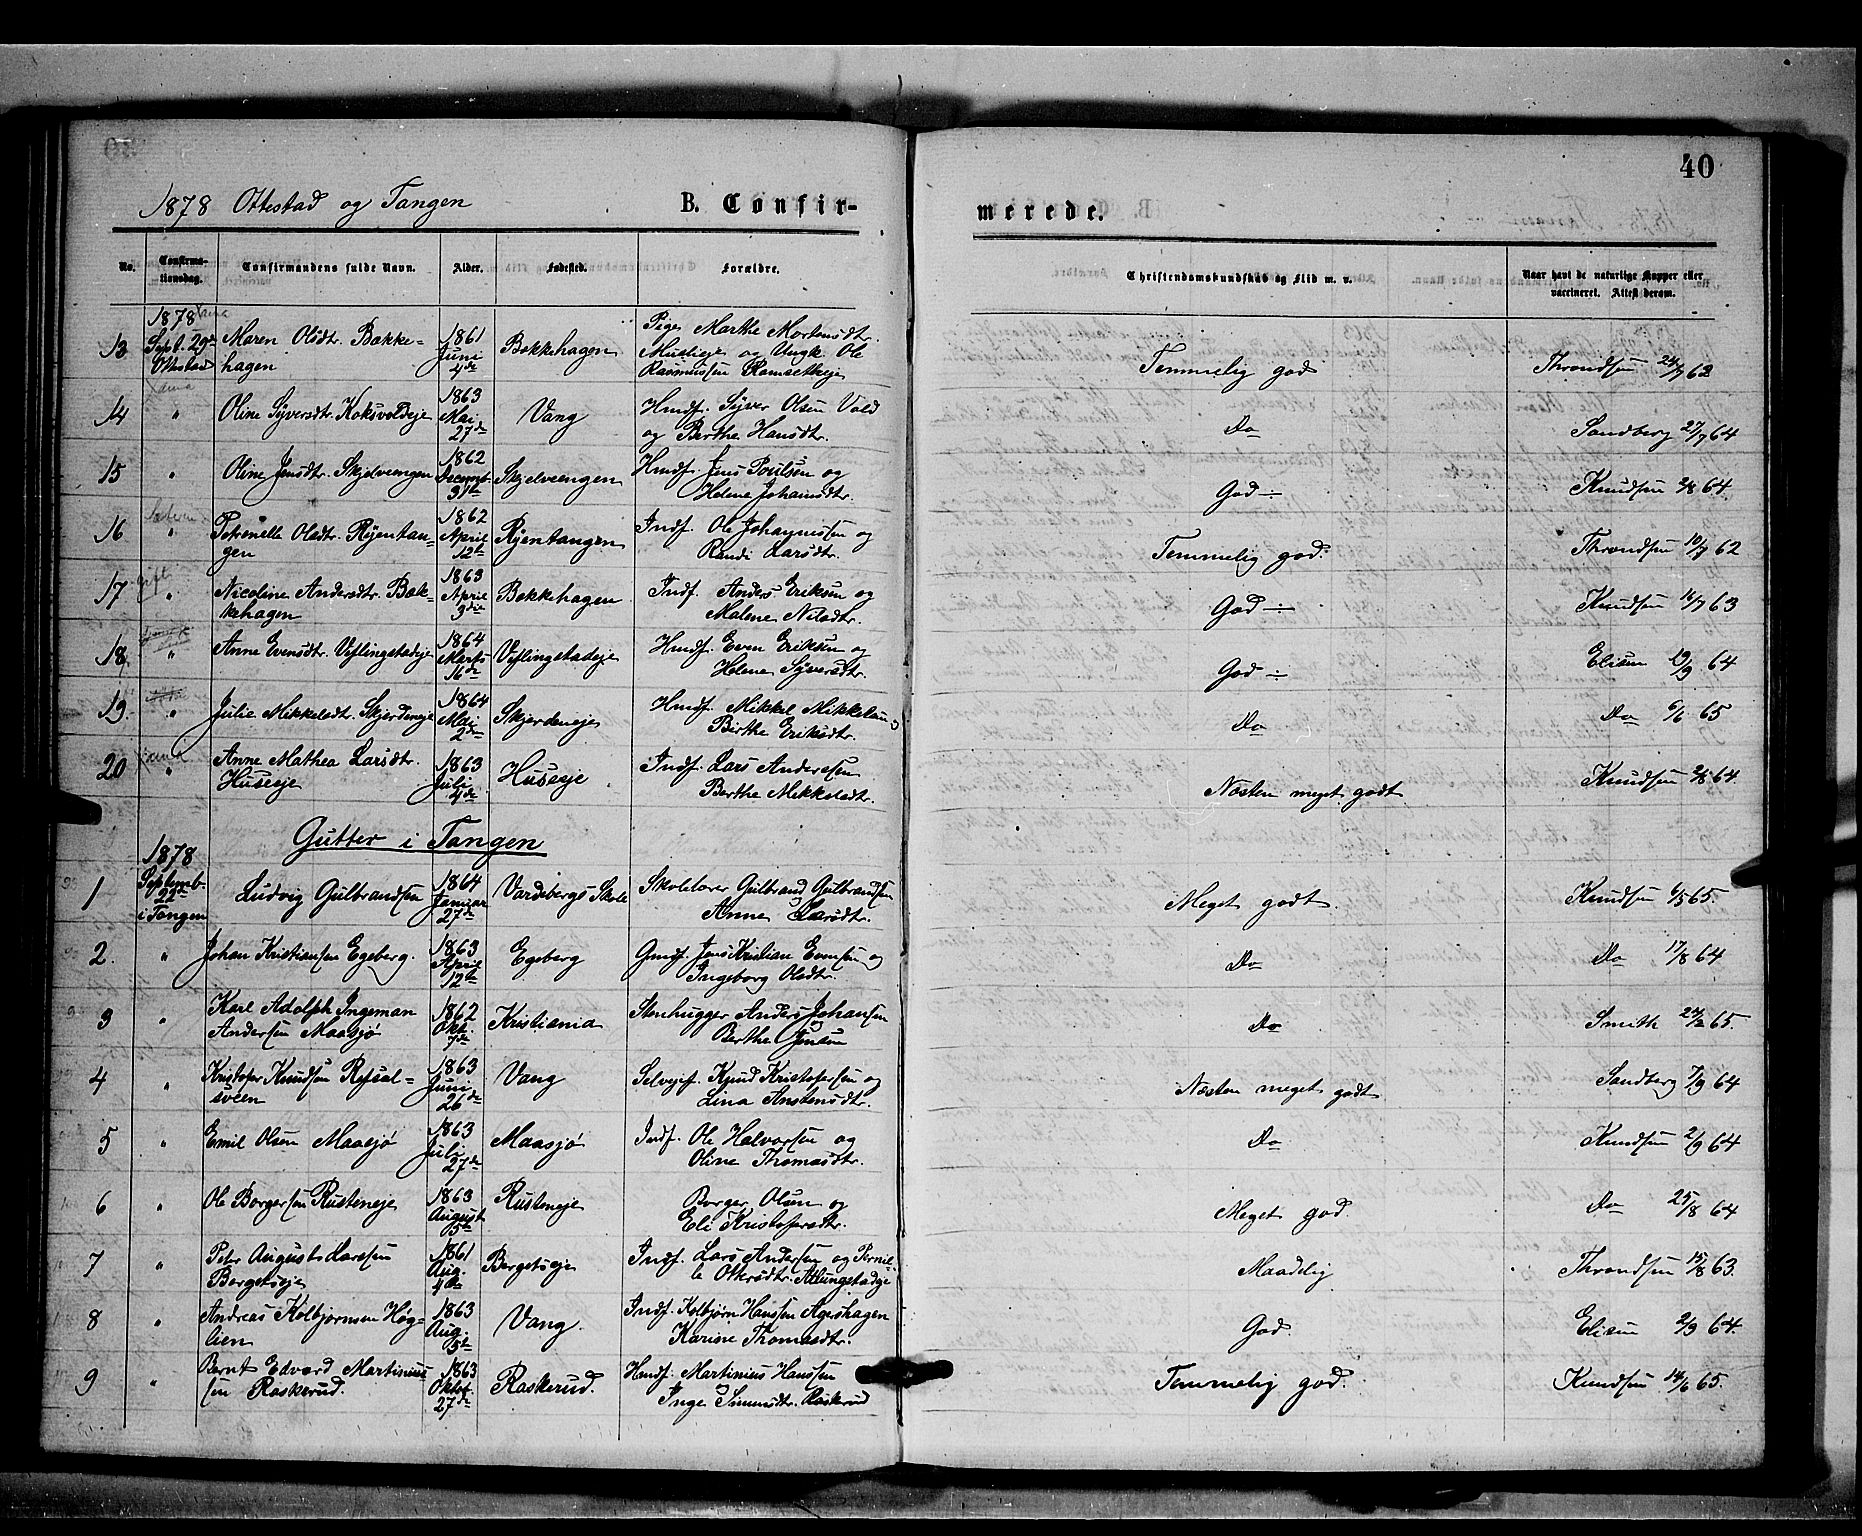 40
1878 Ottestad og Tangen
B. Confir-
merede.
No.
Confirma-
tionsdag.
Confirmandens fulde Navn.
Alder.
Fødested.
Forældre.
Christendomskundskab og Flid m. v.
Naar havt de naturlige Kopper eller
vaccineret. Attest derom.
1878
13 Sept. 29de Ottestad Maren Olsdtr. Bække-
hagen
1861 Juni 4de
Bekkehagen
Pige Marthe Mortensdtr.
og Ungk. Ole
Rasmussen Ramsetheje
Temmelig god
Throndsen 24/7 62
14 " Oline Syversdtr. Koksvoldeje
1863 Mai 27de
Vang
Hmdf. Syver Olsen Vold
og Berthe Hansdtr.
Do
Sandberg 27/7 64
15 " Oline Jensdtr. Skjelveengen
1862 Decemb. 31te
Skjelveengen
Hmdf. Jens Poulsen og
Helene Johansdtr.
God ÷
Knudsen 2/8 64
16 " Petronelle Olsdtr. Røjentan-
gen
1862 April 12te
Røjentangen
Indf. Ole Johannessen og
Randi Larsdtr.
Temmelig god.
Throndsen 10/7 62
17 gift " Nicoline Andersdtr. Bæk-
kehagen
1863 April 3die
Bekkehagen
Indf. Anders Eriksen og
Malene Nilsdtr.
God ÷
Knudsen 16/7 63
18 " Anne Evensdtr. Viflingstadeje
1864 Marts 16de
Viflingstadeje
Hmdf. Even Eriksen og
Helene Syversdtr.
God ÷
Elisen 19/9 64
19 " Julie Mikkelsdtr. Skjerdeneje
1864 Mai 2den
Skjerdeneje
Hmdf. Mikkel Mikkelsen og
Berthe Eriksdtr.
Do
Do 6/6 65
20 " Anne Mathea Larsdtr.
Huseeje
1863 Juli 4de
Huseeje
Indf. Lars Andersen
Berthe Mikkelsdtr.
Næsten meget godt
Knudsen 2/8 64
Gutter i Tangen
1878
1 Septemb. 22de i Tangen Ludvig Gulbrandsen
1864 Januar 27de
Vardebergs Skole
Skolelærer Gulbrand Gulbrandsen
Anne Larsdtr.
Meget godt.
Knudsen 6/5 65.
2. " Johan Kristiansen Egeberg.
1863 April 12te
Egeberg
Gmdf. Jens Kristian Evensen og
Ingeborg Olsdtr.
Do
Do 17/8 64
3 " Karl Adolph Ingeman
Andersen Maasjø
1862 Okt. 7de
Kristiania
Stenhugger Anders Johansen
Berthe Jensen
Do
Smith 24/2 65.
4 " Kristofer Knudsen Refsal-
sveen
1863 Juni 26de
Vang
Selvejef. Knud Kristofersen og
Lina Anstensdtr.
Næsten meget godt
Sandberg 7/9 64
5 " Emil Olsen Maasjø
1863 Juli 27de
Maasjø
Indf. Ole Halvorsen og
Oline Thomasdtr.
Do
Knudsen 2/9 64
6 " Ole Borgersen Rusteneje
1863 August 15de
Rusteneje
Borger Olsen og
Eli Kristofersdtr.
Meget god.
Do 25/8 64
7 " Peter August Larssen
Bergetseje
1861 Aug. 4de
Bergetseje
Indf. Lars Andersen og Pernil-
le Ottersdtr. Atlungstadeje
Maadelig
Throndsen 15/8 63.
8 " Andreas Kolbjørnsen Høg-
lien
1863 Aug. 15de
Vang
Indf. Kolbjørn Hanssen Ageshagen
Karine Thomasdtr.
God.
Elisen 2/3 64.
9 " Bernt Edvard Martinius-
sen Raskerud.
1863 Oktob. 27de
Raskerud.
Hmdf. Martinius Hanssen
Inge Simensdtr. Raskerud
Temmelig god.
Knudsen 14/6 65.